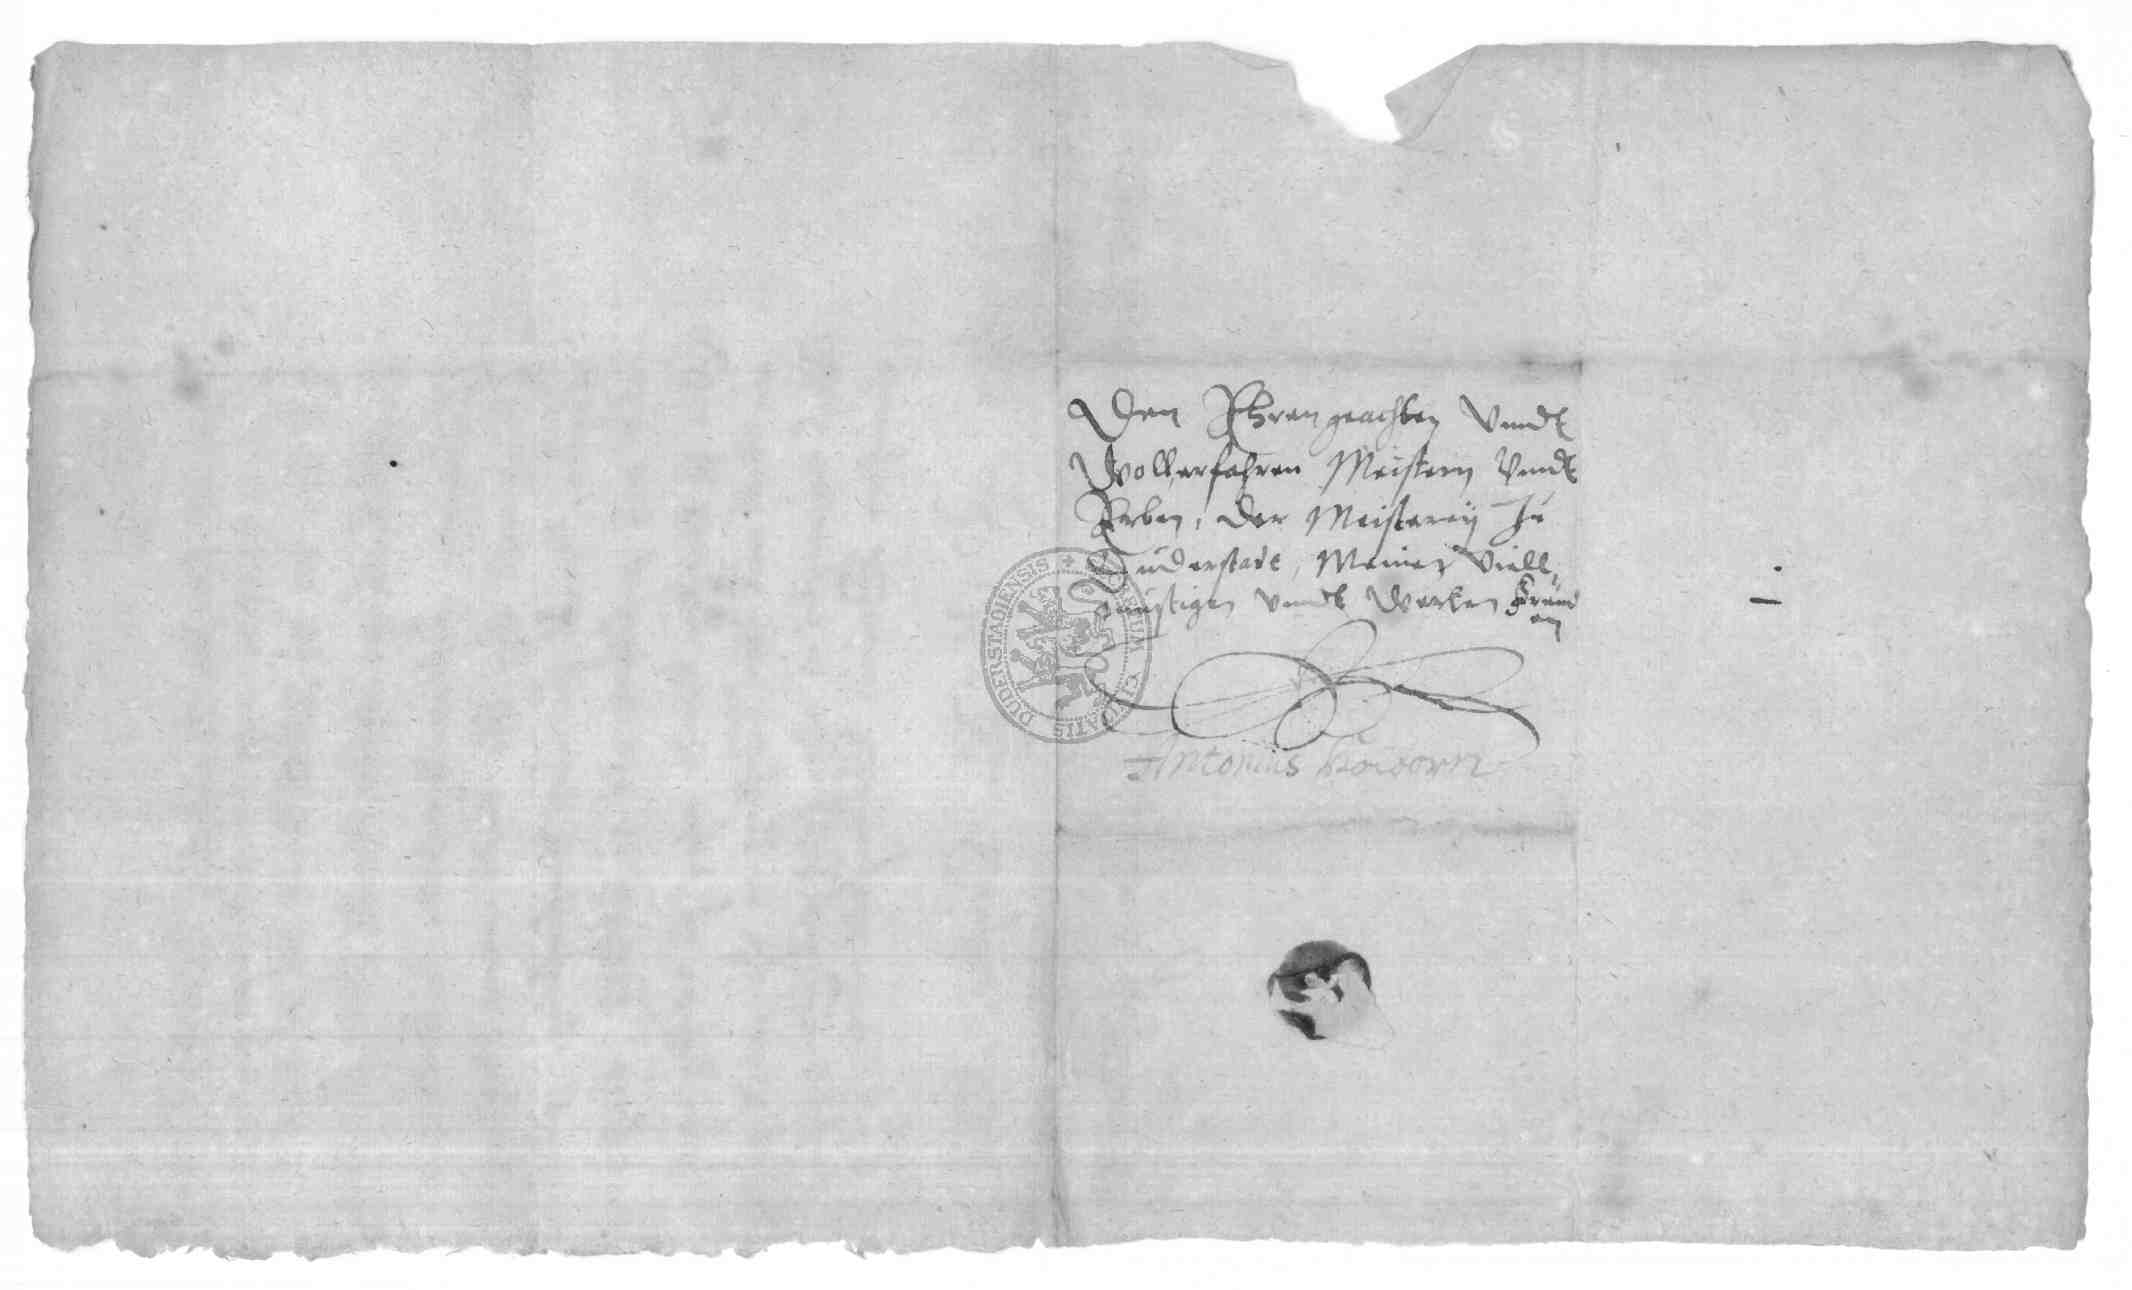 Den Ehrengeachten Vnndt
Wollerfahren Meistern Vnndt
Erben, der Meisterey zu
Duderstadt, Meinen Viell,
günstigen Vnndt Werten Freün
en
DUDERSTADIENSIS
Antonius